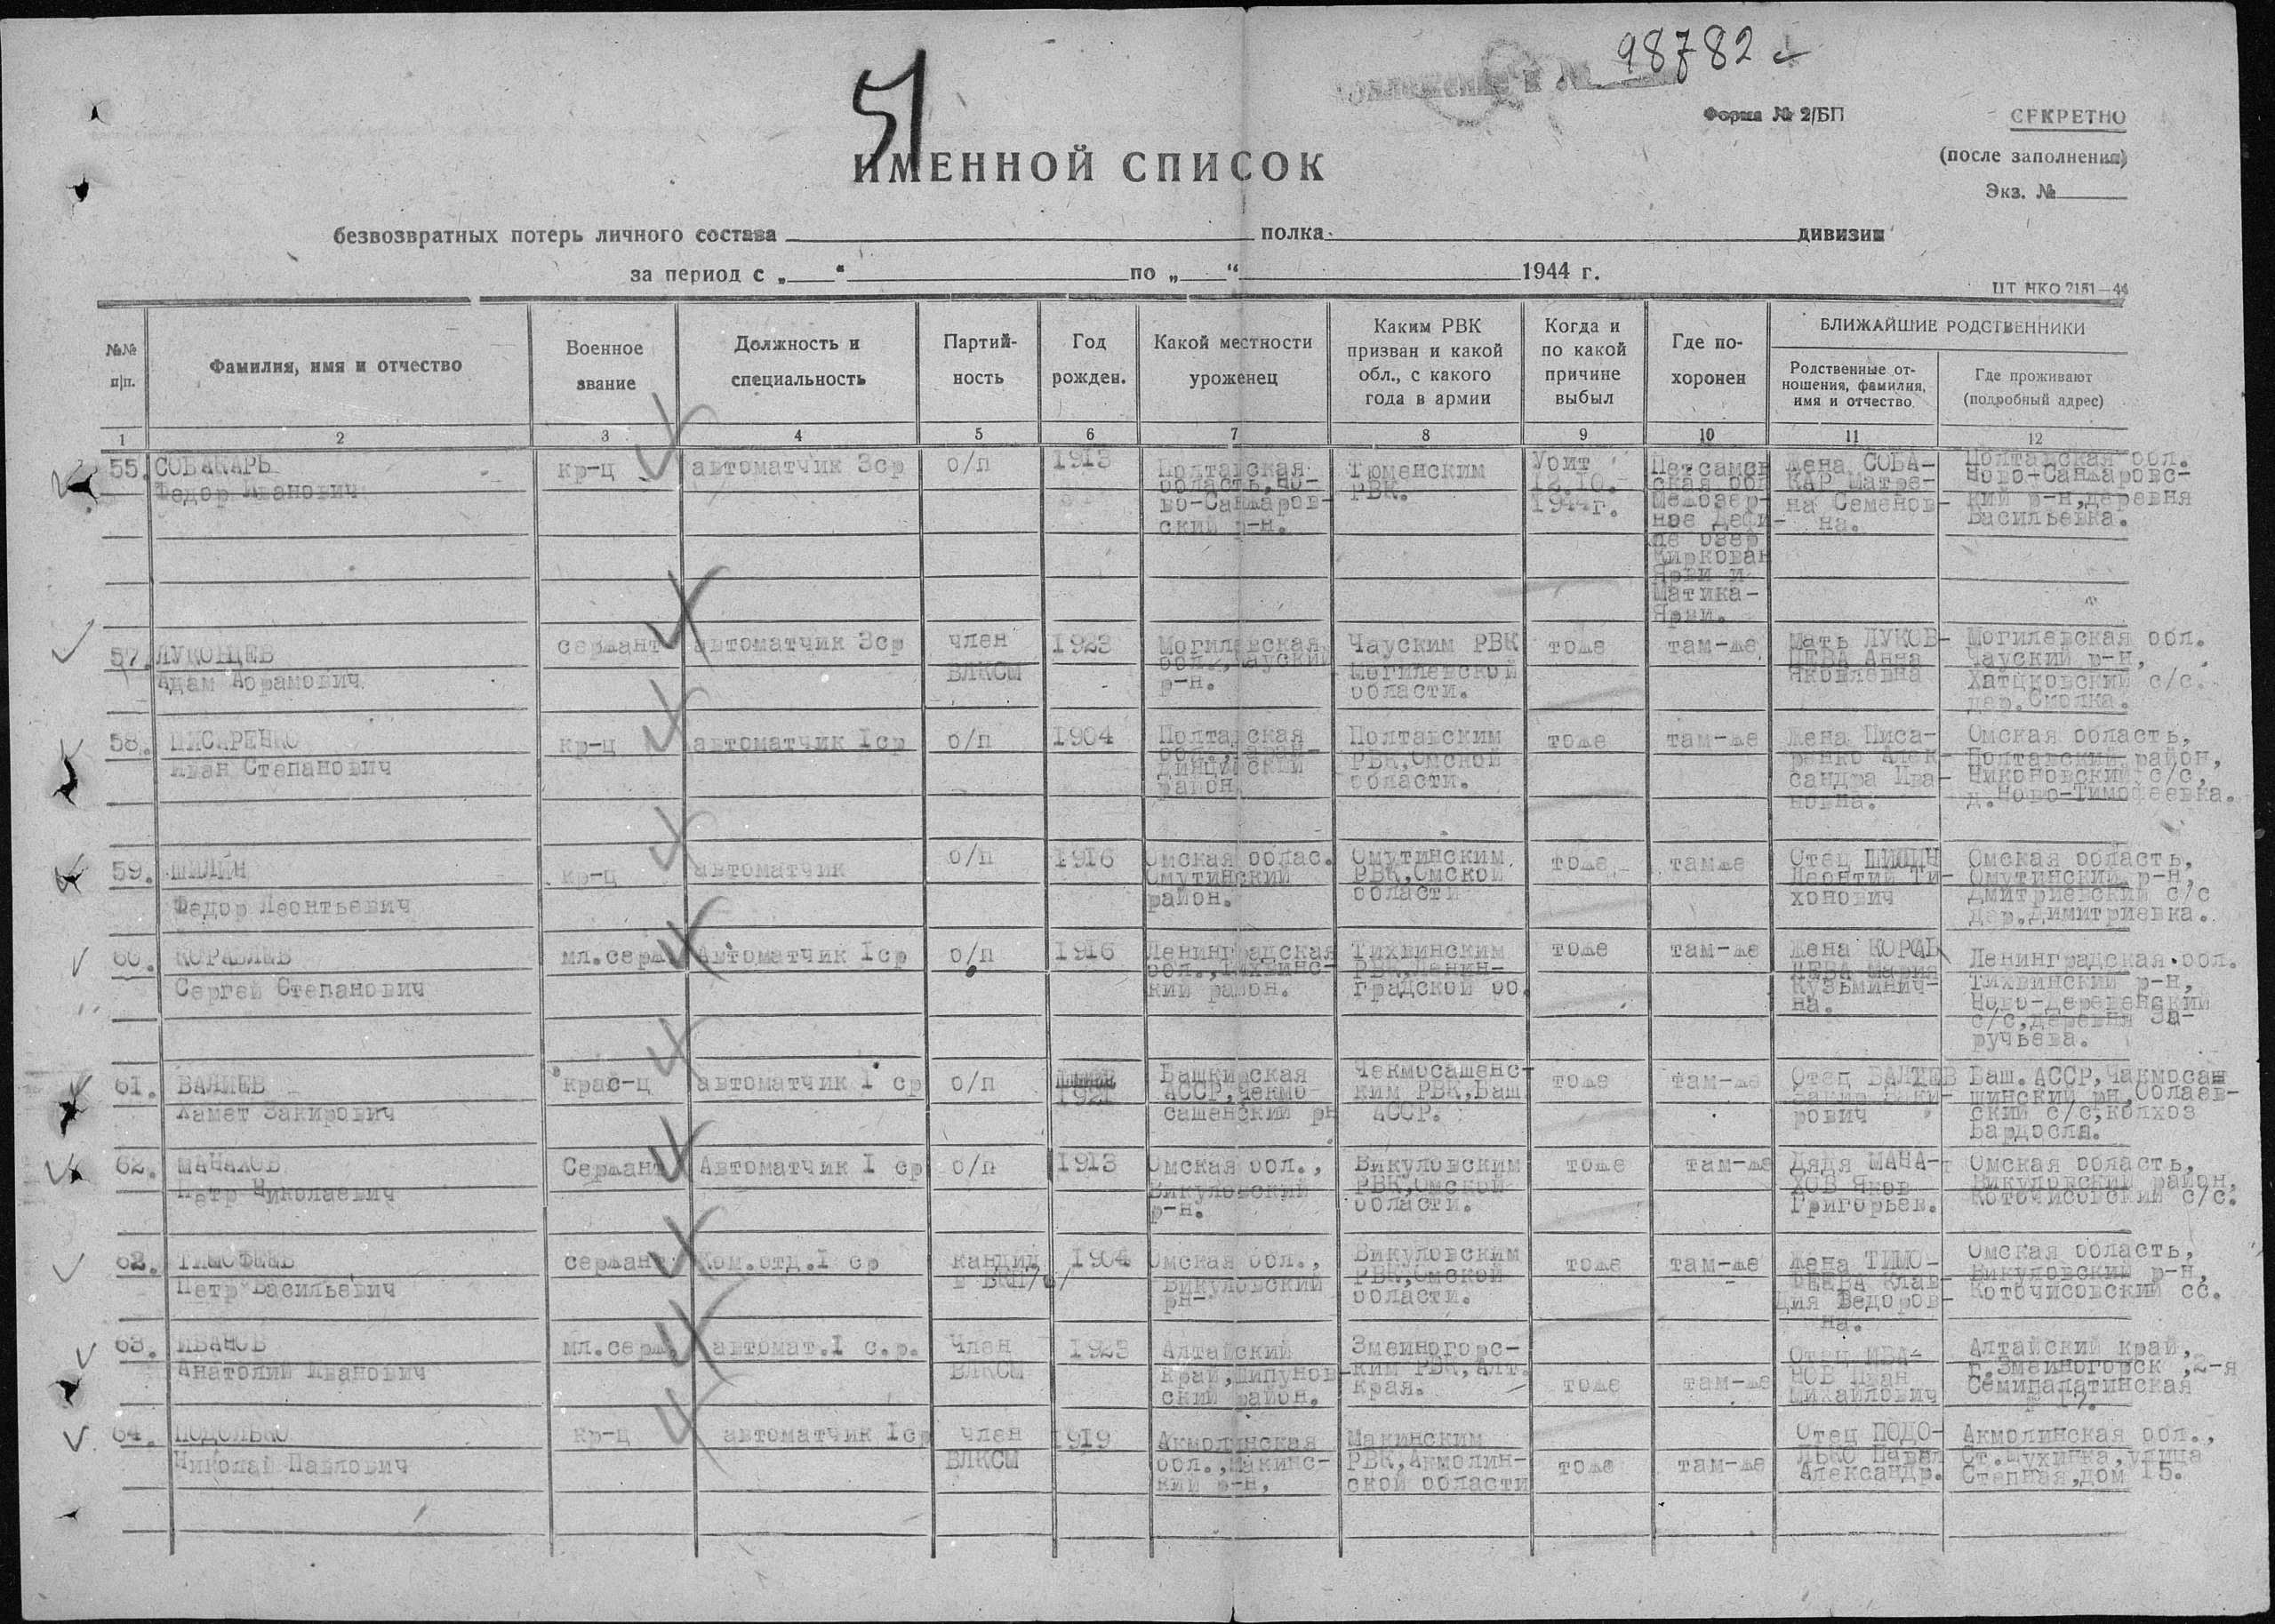 51
98782
Форма № 2/БП
СЕКРЕТНО
(после заполнения)
Экз. №
ИМЕННОЙ СПИСОК
безвозвратных потерь личного состава полка дивизии
за период с „ “ по „ “ 1944 г.
ЦТ НКО 2151—44
№№ п/п.
Фамилия, имя и отчество
Военное звание
Должность и специальность
Партий-
ность
Год рожден.
Какой местности уроженец
Каким РВК
призван и какой
обл., с какого
года в армии
Когда и
по какой
причине
выбыл
Где по-
хоронен
БЛИЖАЙШИЕ РОДСТВЕННИКИ
Родственные от-
ношения, фамилия,
имя и отчество
Где проживают
(подробный адрес)
1 2 3 4 5 6 7 8 9 10 11 12
55. СОБАКАРЬ
Федор Иванович
кр-ц
автоматчик 3ср
б/п
1913
Полтавская
область, Но-
во-Санжаров-
ский р-н.
Тюменским
РВК.
Убит
12.10.
1944г.
Петсамск
ская обл
Межозер-
ное Дефи-
ле озер
Киркован
Ярви и
Матика-
Ярви.
Жена СОБА-
КАР Матре-
на Семенов-
на.
Полтавская обл.
Ново-Санжаровс-
кий р-н, деревня
Васильевка.
57. ЛУКОВЦЕВ
Адам Абрамович
сержант
автоматчик 3ср
член
ВЛКСМ
1923
Могилевская
обл., Чауский
р-н.
Чауским РВК
Могилевской
области.
тоже
там-же
Мать ЛУКОВ-
ЦЕВА Анна
Яковлевна
Могилевская обл.
Чауский р-н,
Хатцковский с/с.
дер. Смолка.
58. ПИСАРЕНКО
Иван Степанович
кр-ц
автоматчик 1ср
б/п
1904
Полтавская
район
Полтавским
РВК, Омской
области.
тоже
там-же
Жена Писа-
ренко Алек-
сандра Ива-
новна.
Омская область,
Полтавский район,
Никоновский с/с,
д. Ново-Тимофеевка.
59. ШИЛИН
Федор Леонтьевич
кр-ц
автоматчик
б/п
1916
Омская облас.
Омутинский
район.
Омутинским
РВК, Омской
области
тоже
тамже
Отец ШИЛИН
Леонтий Ти-
хонович
Омская область,
Омутинский р-н,
Дмитриевский с/с
дер. Димитриевка.
60. КОРАБЛЕВ
Сергей Степанович
мл.серж
Автоматчик 1ср
б/п
1916
Ленинградская
обл., Тихвинс-
кий район.
Тихвинским
РВК, Ленин-
градской об.
тоже
там-же
Жена КОРАБ
ЛЕВА Мария
Кузьминич-
на.
Ленинградская обл.
Тихвинский р-н,
Ново-Деревенский
с/с, деревня За-
ручьева.
61. ВАЛИЕВ
Хамет Закирович
крас-ц
автоматчик 1 ср
б/п
1921
Башкирская
АССР, Чекмо
сашенский рн
Чекмосашенс-
ким РВК, Баш
АССР.
тоже
там-же
Отец ВАЛИЕВ
рович
Баш. АССР, Чакмосаш
шинский рн, Облаев-
ский с/с, колхоз
Бардосля.
62. МАНАХОВ
Петр Николаевич
Сержант
Автоматчик 1 ср
б/п
1913
Омская обл.,
Викуловский
р-н.
Викуловским
РВК, Омской
области.
тоже
там-же
Дядя МАНА-
ХОВ Яков
Григорьев.
Омская область,
Викуловский район,
Коточисовский с/с.
62. ТИМОФЕЕВ
Петр Васильевич
сержант
Ком.отд.1 ср
кандид
в ВКП/б/
1904
Омская обл.,
Викуловский
рн-
Викуловским
РВК, Омской
области.
тоже
там-же
Жена ТИМО-
ФЕЕВА Клав-
дия Ведоров-
на.
Омская область,
Викуловский р-н,
Коточисовский сс.
63. ИВАНОВ
Анатолий Иванович
мл.серж.
автомат.1 с.р.
Член
ВЛКСМ
1923
Алтайский
край, Шипунов-
ский район.
Змеиногорс-
ким РВК, Алт.
края.
тоже
там-же
Отец ИВА-
НОВ Иван
Михайлович
Алтайский край,
г. Змеиногорск, 2-я
Семипалатинская
64. ПОДОЛЬКО
Николай Павлович
кр-ц
автоматчик 1ср
член
ВЛКСМ
1919
Акмолинская
обл., Макинс-
кий р-н,
Макинским
РВК, Акмолин-
ской области
тоже
там-же
Отец ПОДО-
ЛЬКО Павел
Александр.
Акмолинская обл.,
Ст. Шухинка, улица
Степная, дом 15.